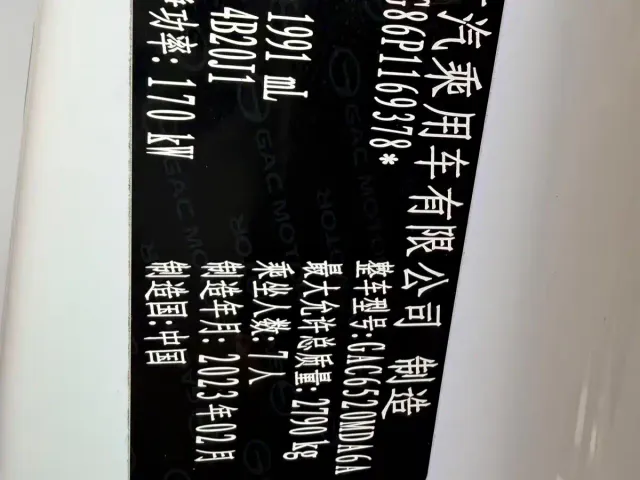 汽乘用车有限公司 制造
G86P1169378*
整车型号:GAC6520MDA6A
最大允许总质量:2790kg
1991 mL
乘坐人数:7人
4B20J1
制造年月:2023年02月
功率:170kW
制造国:中国
GAC MOTOR
GAC MOTOR